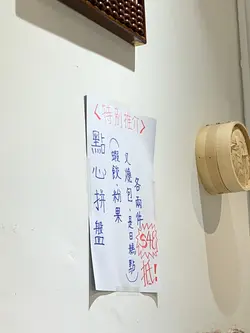 <特別推介>
點心拼盤
(蝦餃,粉果
叉燒包,是日糕點)
各兩件
抵!